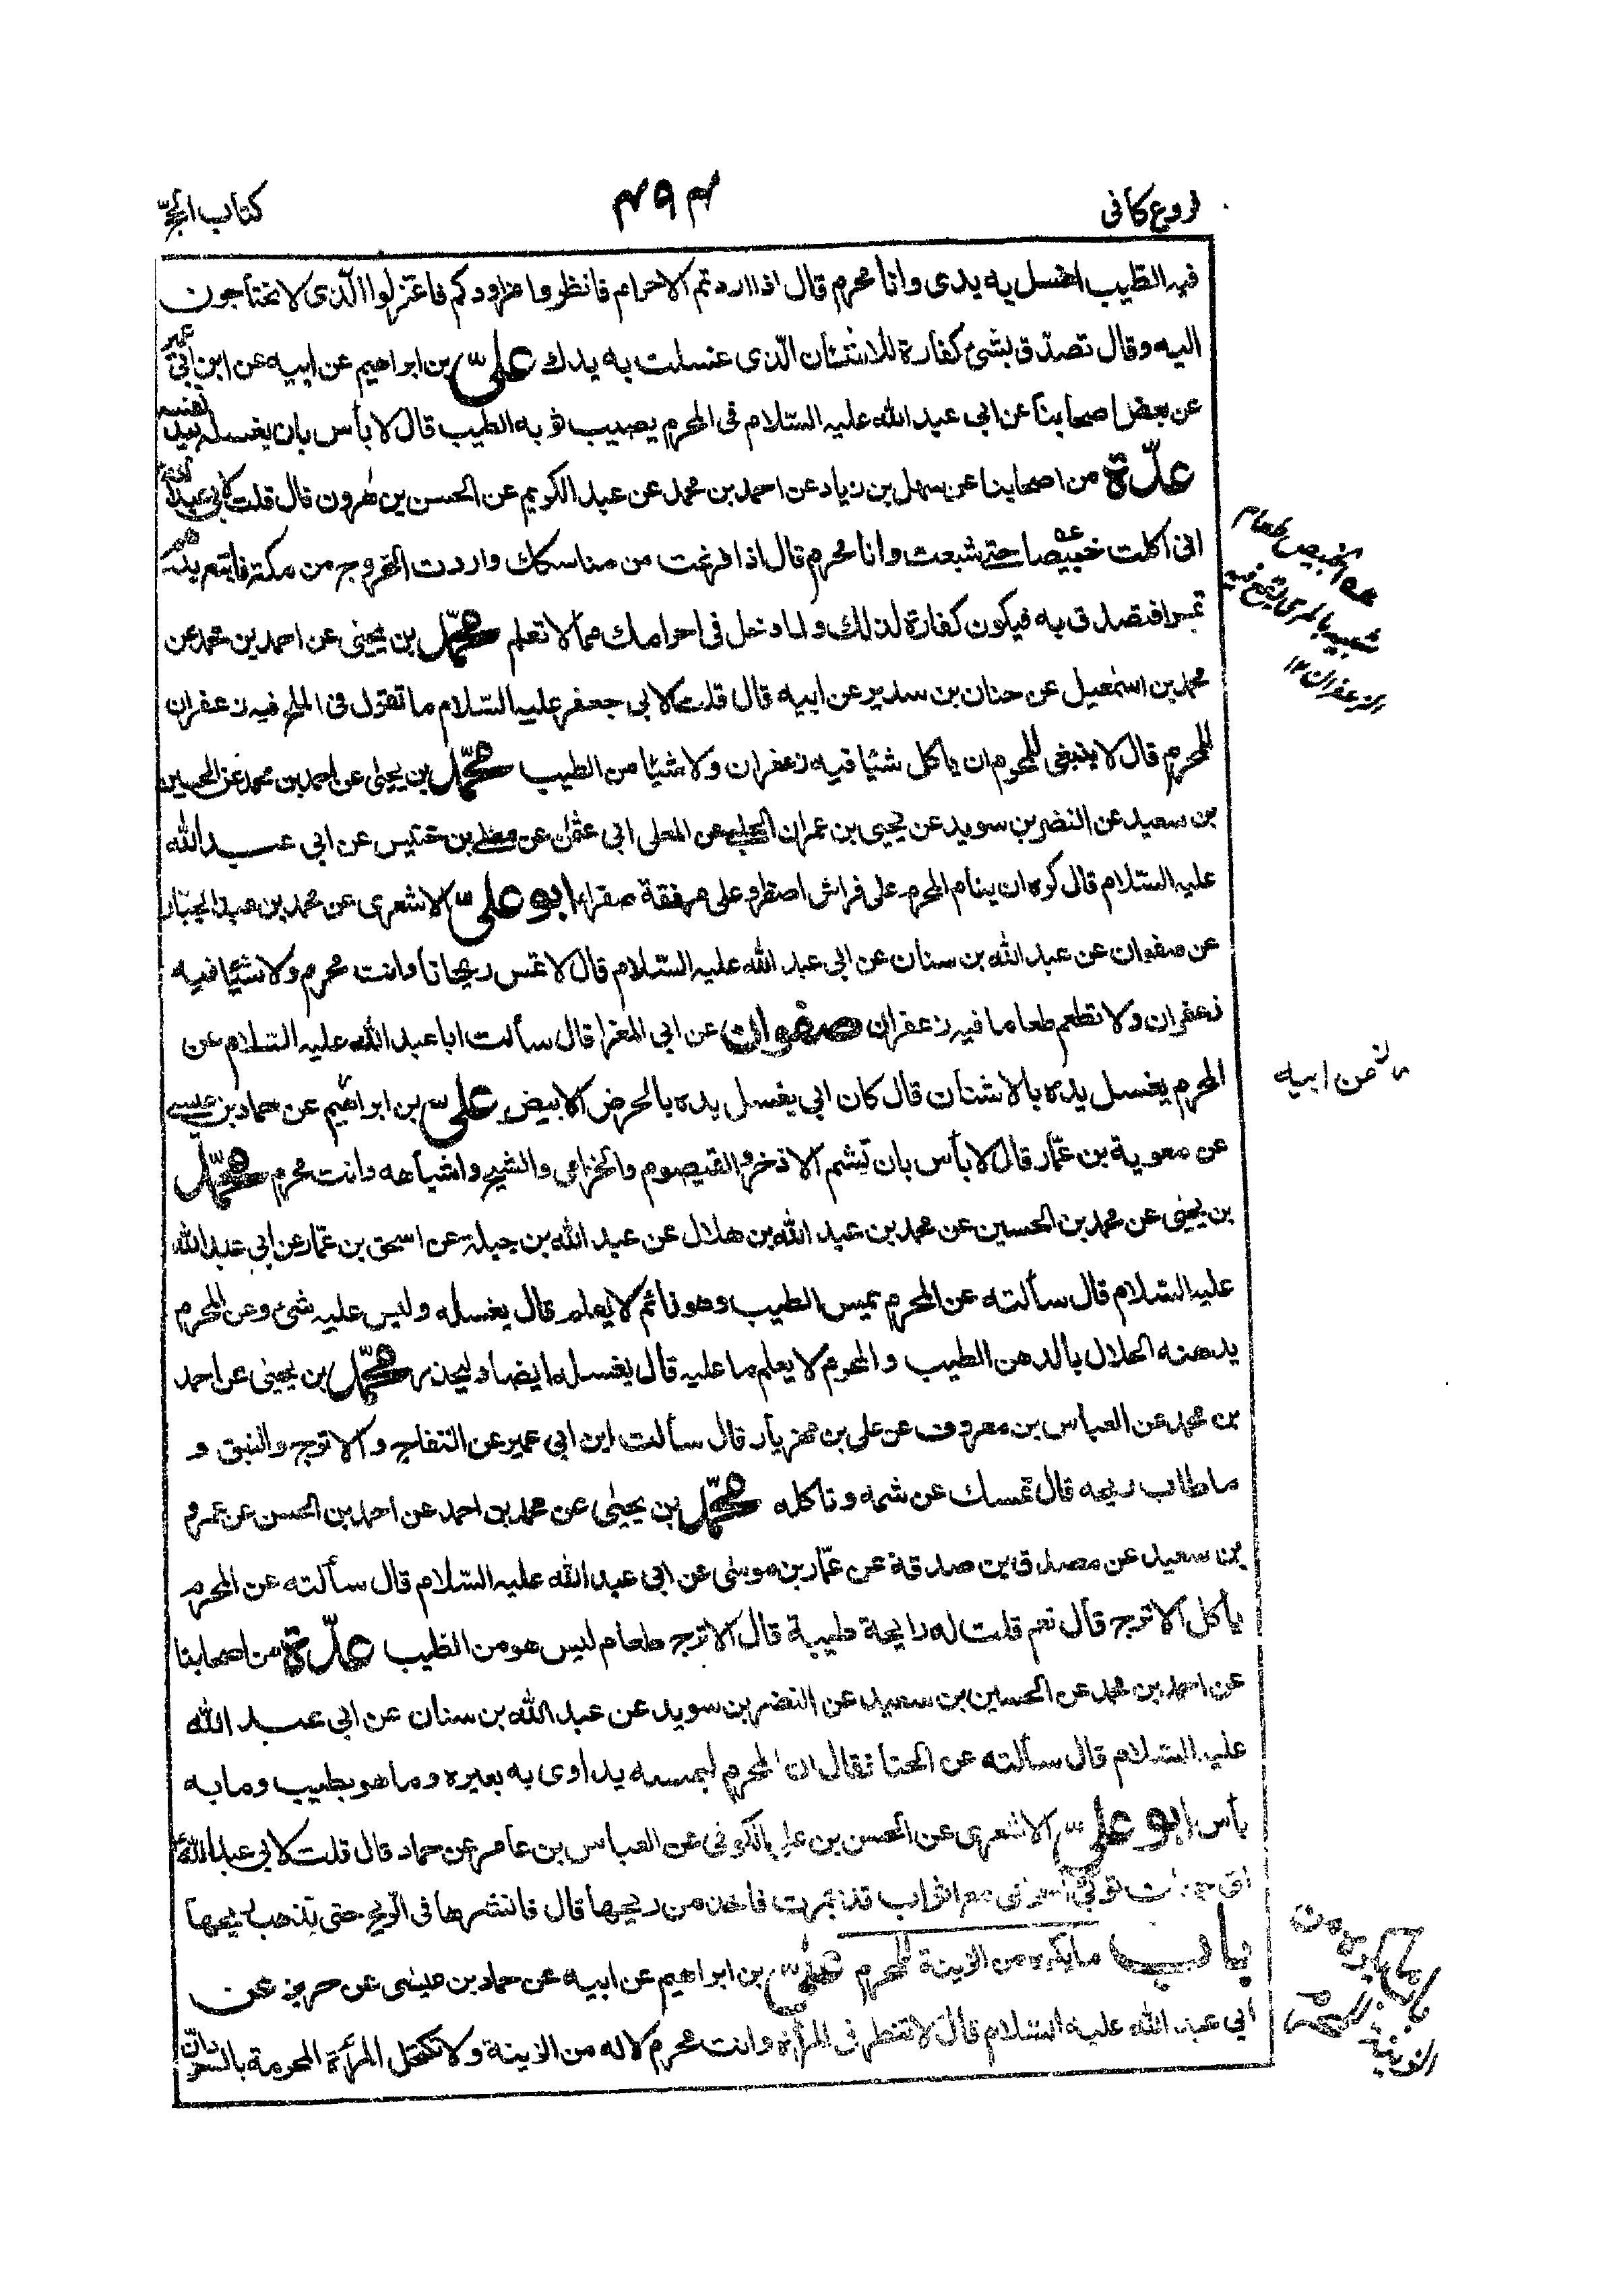 فروع كافى
٤٩٤
كتاب الحجّ
فيه الطّيب اغسل به يدى وانا محرم قال اذا اردتم الاحرام فانظروا مزاودكم فاعزلوا الّذى لا تحتاجون
اليه وقال تصدّق بشئ كفارة للاشنان الّذى غسلت به يدك علىّ بن ابراهيم عن ابيه عن ابن ابى عمير
عن بعض اصحابنا عن ابى عبد الله عليه السّلام فى المحرم يصيب ثوبه الطيب قال لا بأس بان يغسله بيد نفسه
عدّة من اصحابنا عن سهل بن زياد عن احمد بن محمد عن عبد الكريم عن الحسن بن هٰرون قال قلت لابى عبد الله
انى اكلت خبيصا حتى شبعت وانا محرم قال اذا فرغت من مناسكك واردت الخروج من مكة فابتع بدرهم
تمرا فتصدق به فيكون كفارة لذلك ولما دخل فى احرامك ممّا لا تعلم محمّد بن يحيٰى عن احمد بن محمد عن
محمد بن اسمٰعيل عن حنان بن سدير عن ابيه قال قلت لابى جعفر عليه السّلام ما تقول فى الملح فيه زعفران
للمحرم قال لا ينبغى للمحرم ان ياكل شيئا فيه زعفران ولا شيئا من الطيب محمّد بن يحيٰى عن احمد بن محمد عن الحسين
بن سعيد عن النضر بن سويد عن يحيى بن عمران الحلبى عن المعلى ابى عثمٰن عن معلى بن خنيس عن ابى عبد الله
عليه السّلام قال كره ان ينام المحرم على فراش اصفر او على مرفقة صفراء ابو علىّ الاشعرى عن محمد بن عبد الجبّار
عن صفوان عن عبد الله بن سنان عن ابى عبد الله عليه السّلام قال لا تمس ريحانا وانت محرم ولا شيئا فيه
زعفران ولا تطعم طعاما فيه زعفران صفوان عن ابى المغرا قال سألت ابا عبد الله عليه السّلام عن
المحرم يغسل يده بالاشنان قال كان ابى يغسل يده بالحرض الابيض علىّ بن ابراهيم عن حماد بن عيسى
عن معوية بن عمّار قال لا بأس بان تشم الاذخر والقيصوم والخزامى والشيح واشباهه وانت محرم محمّد
بن يحيٰى عن محمد بن الحسين عن محمد بن عبد الله بن هلال عن عبد الله بن جبلة عن اسحق بن عمّار عن ابى عبد الله
عليه السّلام قال سألته عن المحرم يمس الطيب وهو نائم لا يعلم قال يغسله وليس عليه شئ وعن المحرم
يدهنه الحلال بالدهن الطيب والمحرم لا يعلم ما عليه قال يغسله ايضا وليحذر محمّد بن يحيٰى عن احمد
بن محمد عن العباس بن معروف عن على بن مهزيار قال سألت ابن ابى عمير عن التفاح والاترج والنبق و
ما طاب ريحه قال تمسك عن شمه وتاكله محمّد بن يحيٰى عن محمد بن احمد عن احمد بن الحسن عن عمرو
بن سعيد عن مصدق بن صدقة عن عمّار بن موسٰى عن ابى عبد الله عليه السّلام قال سألته عن المحرم
يأكل الاترج قال نعم قلت له رايحة طيبة قال الاترج طعام ليس هو من الطيب عدّة من اصحابنا
عن احمد بن محمد عن الحسين بن سعيد عن النضر بن سويد عن عبد الله بن سنان عن ابى عبد الله
عليه السّلام قال سألته عن الحنا فقال ان المحرم ليمسه يداوى به بعيره وما هو بطيب وما به
بأس ابو علىّ الاشعرى عن الحسن بن على الكوفى عن العباس بن عامر عن حماد قال قلت لابى عبد الله
انى ثوبى مع اثواب قد جمرت فاخذ من ريحها قال فانشرها فى الرّيح حتى يذهب ريحها
باب ما يكره من الزينة للمحرم علىّ بن ابراهيم عن ابيه عن حماد بن عيسٰى عن حريز عن
ابى عبد الله عليه السّلام قال لا تنظر فى المرأة وانت محرم لانه من الزينة ولا تكتحل المرأة المحرمة بالسّواد ان
عه الخبيص طعام
الزعفران ١٢
عن ابيه
باب ما يكره من
الزينة للمحرم